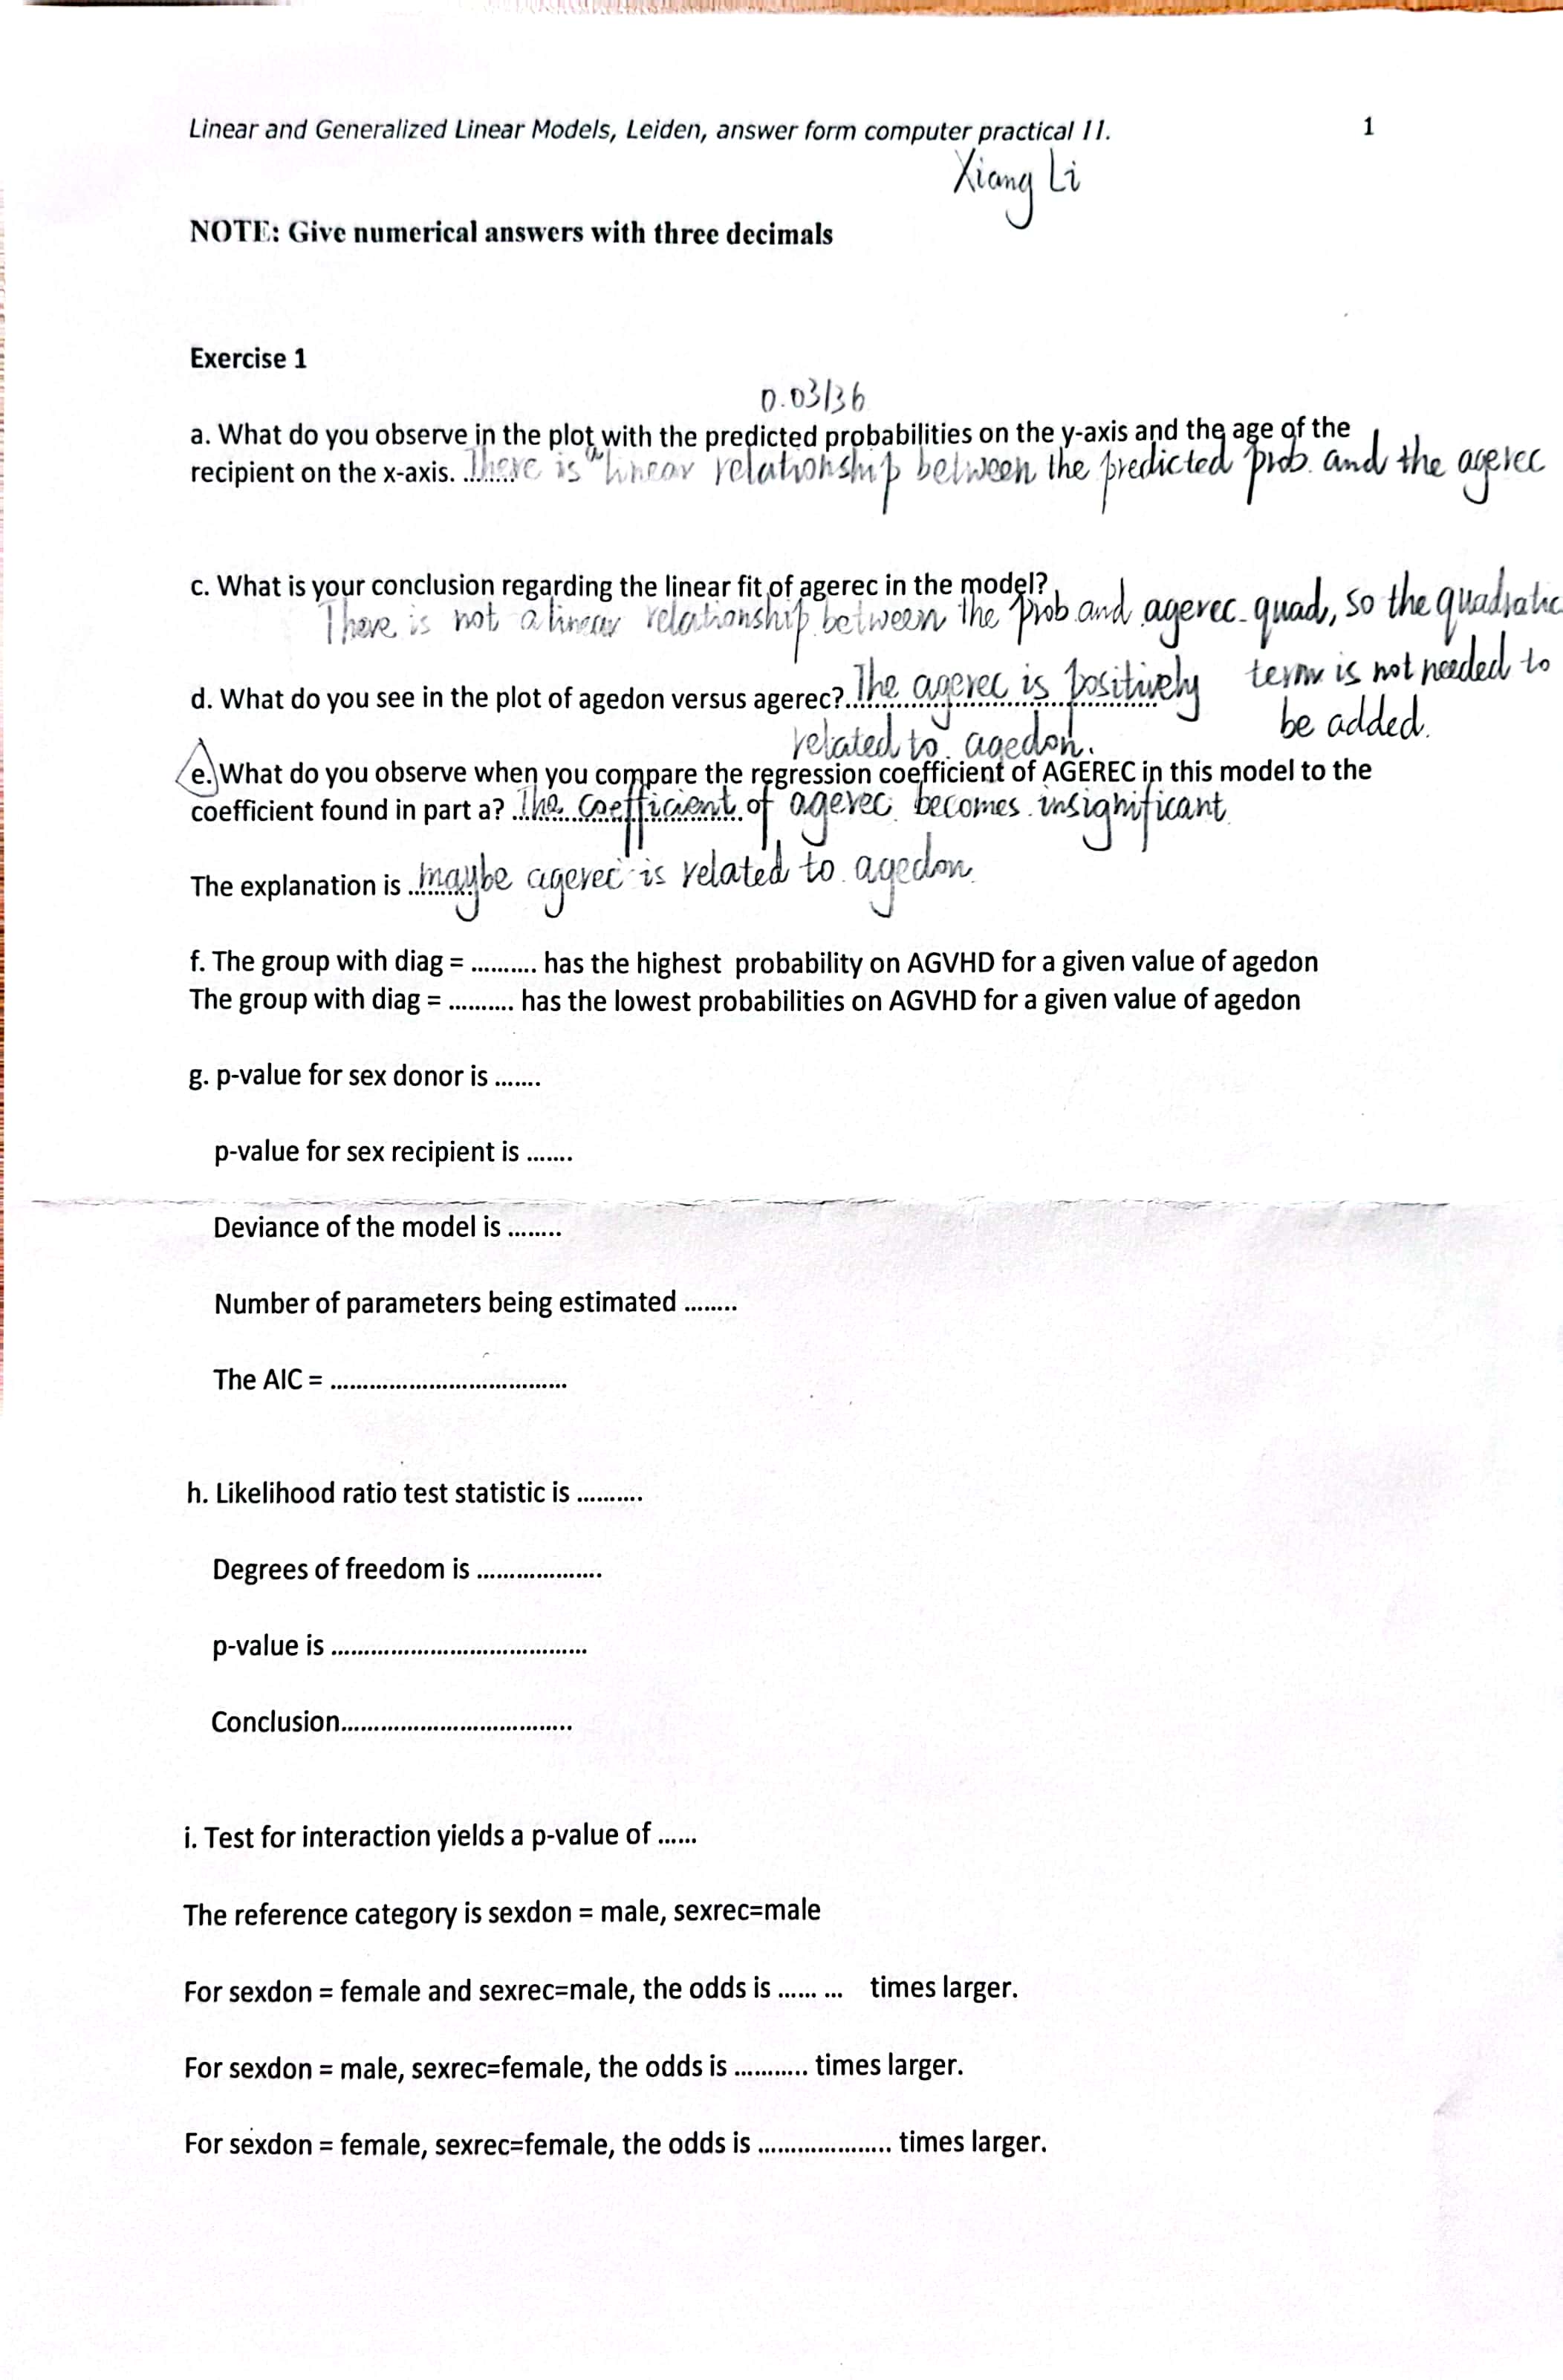 Linear and Generalized Linear Models, Leiden, answer form computer practical II. 1
Xiang Li
NOTE: Give numerical answers with three decimals
Exercise 1
0.03136
a. What do you observe in the plot with the predicted probabilities on the y-axis and the age of the
recipient on the x-axis. ........There is a linear relationship between the predicted prob. and the agerec
c. What is your conclusion regarding the linear fit of agerec in the model?
There is not a linear relationship between the prob and agerec_quad, so the quadratic
term is not needed to
be added.
d. What do you see in the plot of agedon versus agerec?..The agerec is positively
related to agedon.
e. What do you observe when you compare the regression coefficient of AGEREC in this model to the
coefficient found in part a? ..The coefficient of agerec becomes insignificant
The explanation is ........maybe agerec is related to agedon.
f. The group with diag = .......... has the highest probability on AGVHD for a given value of agedon
The group with diag = .......... has the lowest probabilities on AGVHD for a given value of agedon
g. p-value for sex donor is .......
p-value for sex recipient is .......
Deviance of the model is ........
Number of parameters being estimated ........
The AIC = ....................................
h. Likelihood ratio test statistic is ..........
Degrees of freedom is ...................
p-value is .......................................
Conclusion...................................
i. Test for interaction yields a p-value of ......
The reference category is sexdon = male, sexrec=male
For sexdon = female and sexrec=male, the odds is ...... ... times larger.
For sexdon = male, sexrec=female, the odds is ........... times larger.
For sexdon = female, sexrec=female, the odds is .................... times larger.